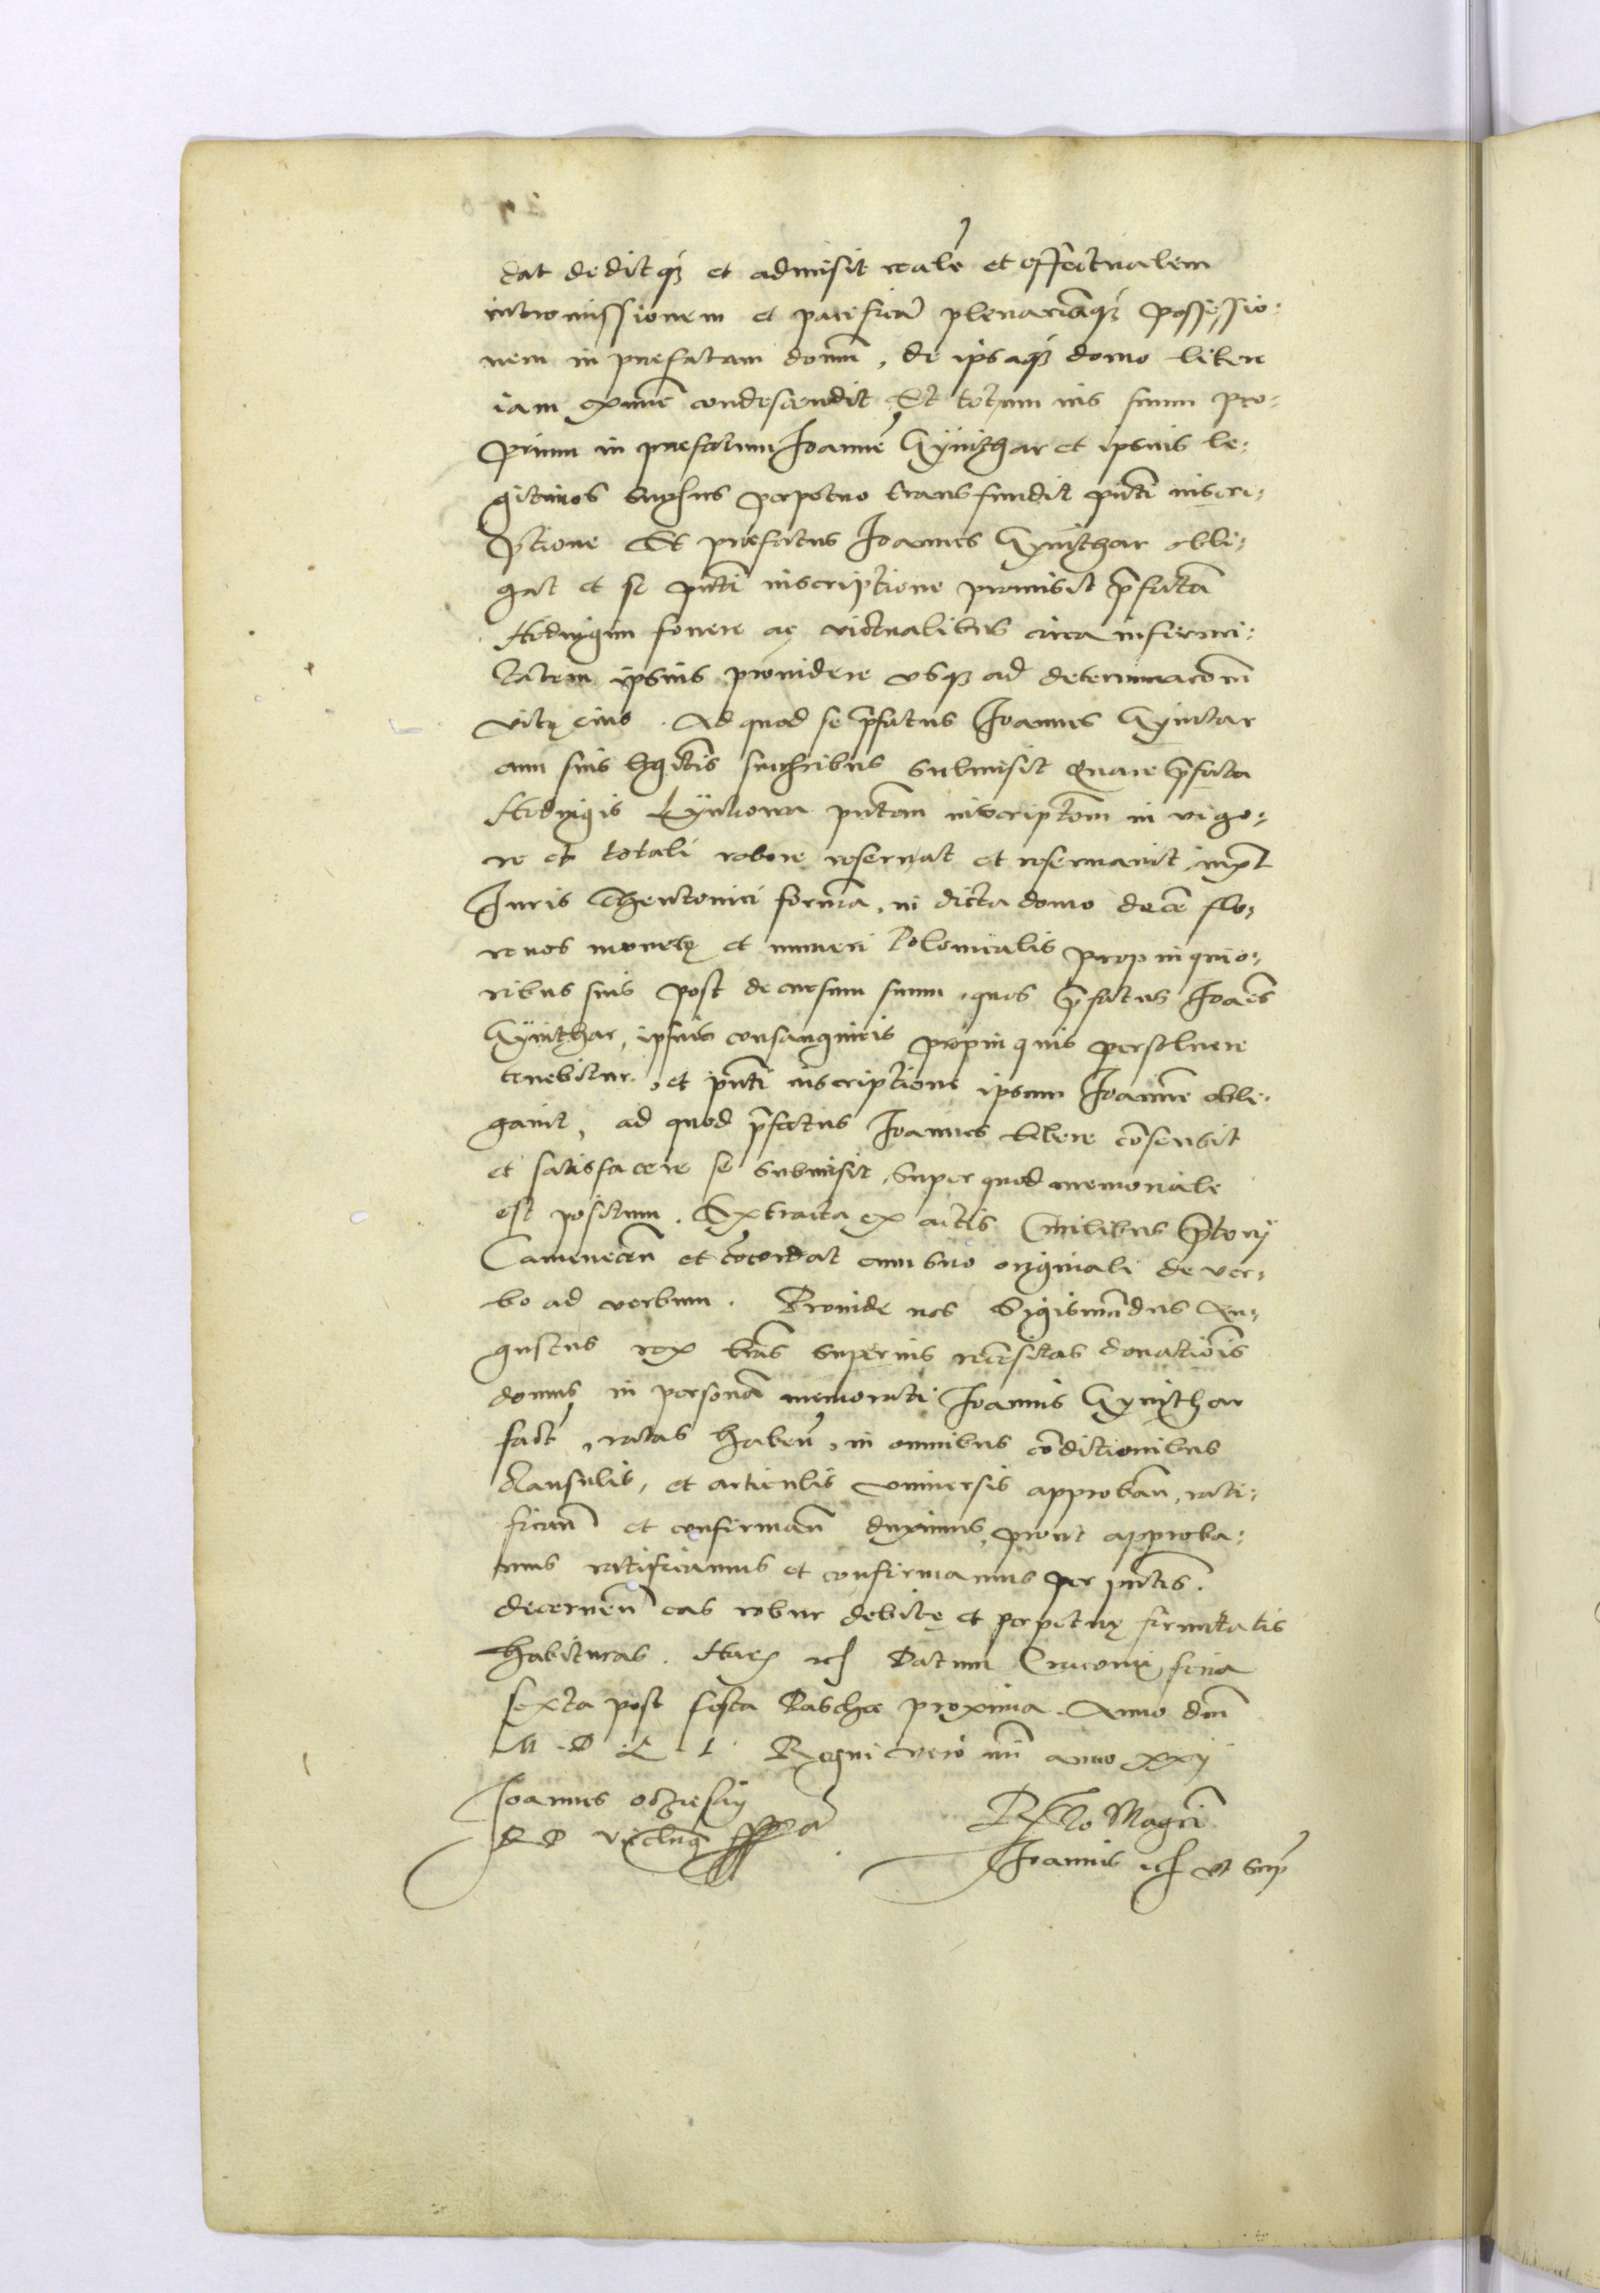 dat deditq3 et admisit realē et effectualem
intromissionem et pacificā plenariāq3 possessio-
nem in praefatam domū, de ipsaq3 domo libere
iam exnunc condescendit Et totum ius suum pro-
prium in praefatum Joannē Gÿnthar et ipsius le-
gitimos succſus perpetuo transfundit pn̄ti inscri-
ptione Et praefatus Joannes Gÿnthar obli-
gat et se pn̄ti inscriptione promisit p̄fatā
Hedvigim fovere ac victualibus circa infirmi-
tatem ipsius providere usq3 ad determinacōm̄
vitę eius. Ad quod se p̄fatus Joannes Gÿntar
cum suis legitīs succribus submisit Quare p̄fata
Hedvigis pn̄tem inscriptōm in vigo-
re et totali robore reservat et reservavit, iuxt
Juris Theutonici formā, in dicta domo decē flo-
renos monetę et numeri Polonicalis propinquio-
ribus suis post decursum suum, quos p̄fatus Joaēs
Gÿnthar, ipsius consanguineis propinquis persolvere
tenebitur, et pn̄ti inscriptione ipsum Joannē obli-
gavit, ad quod p̄fatus Joannes libere cōsensit
et satisfacere se submisit, super quod memoriale
est positum. Extracta ex actis Civilibus p̄torÿ
Camenecen̄ et cōcordat cum suo originali de ver-
bo ad verbum. Proinde nos Sigismūdus Au-
gustus rex lr̄as superius recēsitas donatiōis
domus in personā memorati Joannis Gÿnthar
fact, ratas haben̄, in omnibus cōditionibus
clausulis, et articulis universis approban̄, rati-
fican̄ et confirman̄ duximus, prout approba-
mus ratificamus et confirmamus per pn̄tes.
decernen̄ eas robur debitę et perpetuę firmitatis
habituras. Harz rc̄ Datum Cracovię feria
sexta post festa Paschae proxima. Anno dnī
M. D. L. I. Regni vero nr̄i anno xxij
Joannes Oczieski
R P Vicecācellr̄
Rela Magcī
Joannis rc̄ ut sup̄